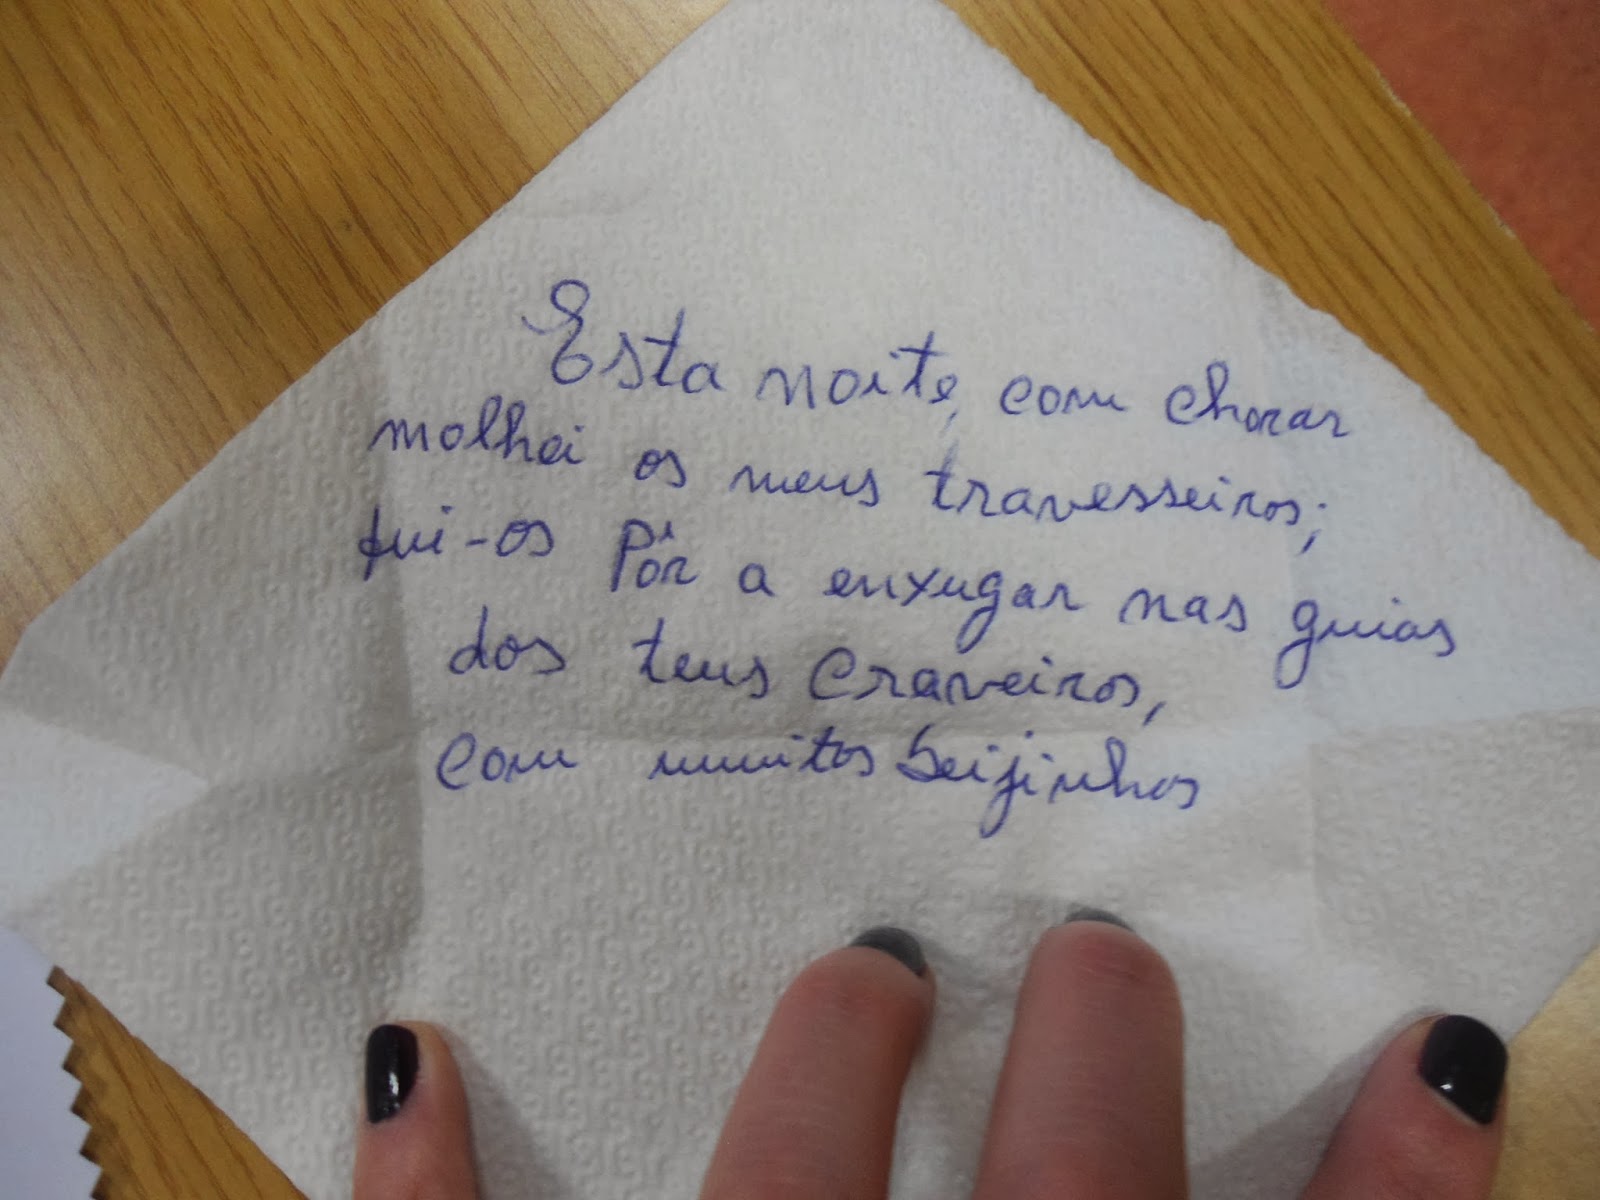 Esta noite, com chorar
molhei os meus travesseiros;
fui-os pôr a enxugar nas guias
dos teus craveiros,
com muitos beijinhos